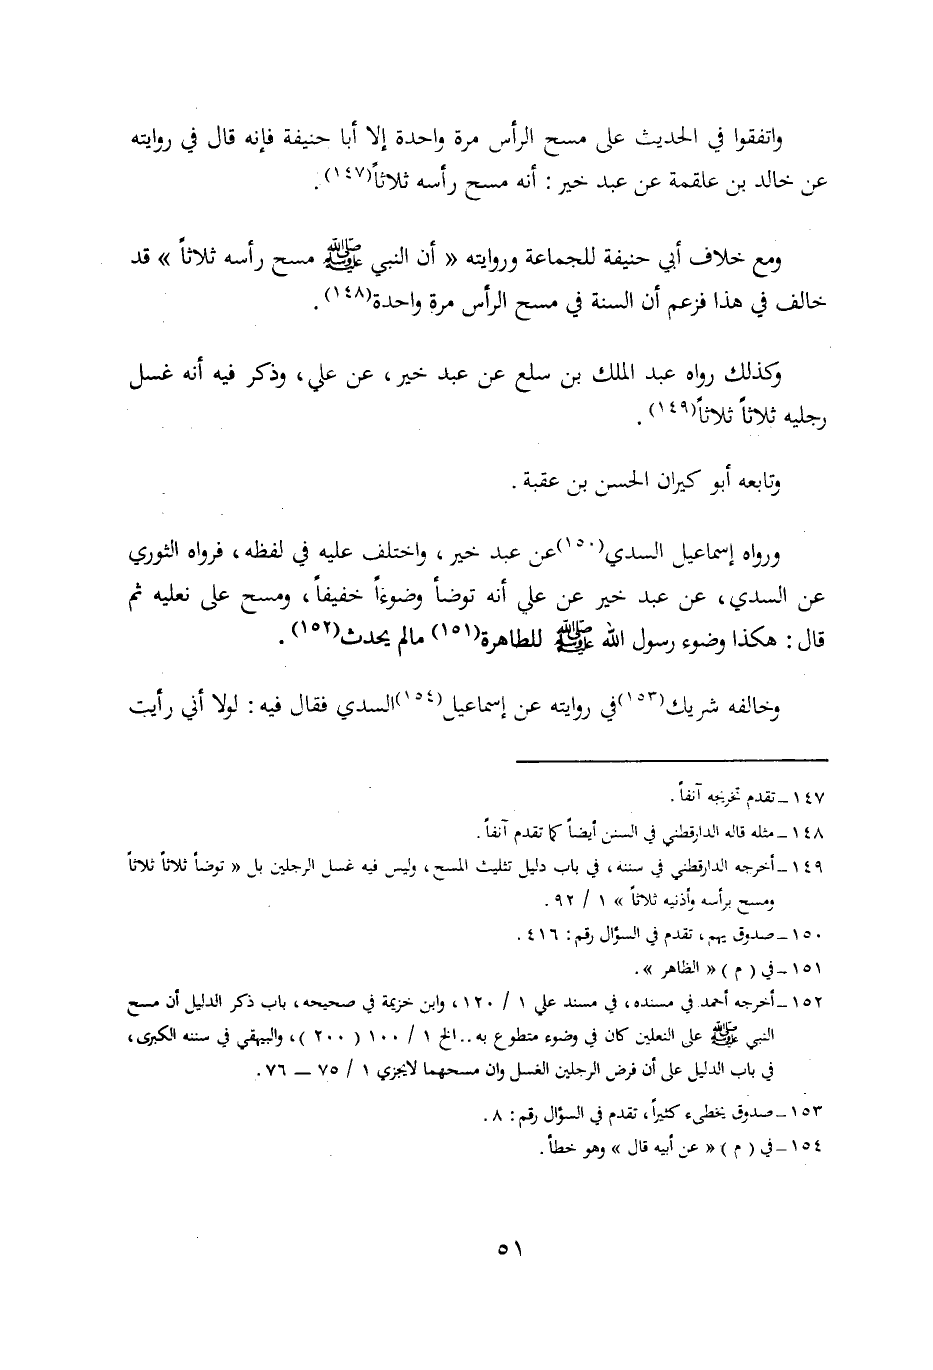 واتفقوا في الحديث على مسح الرأس مرة واحدة إلا أبا حنيفة فإنه قال في روايته
عن خالد بن علقمة عن عبد خير : أنه مسح رأسه ثلاثاً(١٤٧) .
ومع خلاف أبي حنيفة للجماعة وروايته « أن النبي ﷺ مسح رأسه ثلاثاً » قد
خالف في هذا فزعم أن السنة في مسح الرأس مرة واحدة(١٤٨) .
وكذلك رواه عبد الملك بن سلع عن عبد خير ، عن علي ، وذكر فيه أنه غسل
رجليه ثلاثاً ثلاثاً(١٤٩) .
وتابعه أبو كيران الحسن بن عقبة .
ورواه إسماعيل السدي(١٥٠)عن عبد خير ، واختلف عليه في لفظه ، فرواه الثوري
عن السدي ، عن عبد خير عن علي أنه توضأ وضوءاً خفيفاً ، ومسح على نعليه ثم
قال : هكذا وضوء رسول الله ﷺ للطاهرة(١٥١) مالم يحدث(١٥٢) .
وخالفه شريك(١٥٣)في روايته عن إسماعيل(١٥٤)السدي فقال فيه : لولا أني رأيت
١٤٧ ـ تقدم تخريجه آنفاً .
١٤٨ ـ مثله قاله الدارقطني في السنن أيضاً كما تقدم آنفاً .
١٤٩ ـ أخرجه الدارقطني في سننه ، في باب دليل تثليث المسح ، وليس فيه غسل الرجلين بل « توضأ ثلاثاً ثلاثاً
ومسح برأسه وأذنيه ثلاثاً » ١ / ٩٢ .
١٥٠ ـ صدوق يهم ، تقدم في السؤال رقم : ٤١٦ .
١٥١ ـ في ( م ) « الظاهر » .
١٥٢ ـ أخرجه أحمد في مسنده ، في مسند علي ١ / ١٢٠ ، وابن خزيمة في صحيحه ، باب ذكر الدليل أن مسح
النبي ﷺ على النعلين كان في وضوء متطوع به .. الخ ١ / ١٠٠ ( ٢٠٠ ) ، والبيهقي في سننه الكبرى ،
في باب الدليل على أن فرض الرجلين الغسل وان مسحهما لايجزي ١ / ٧٥ ـ ٧٦ .
١٥٣ ـ صدوق يخطىء كثيراً ، تقدم في السؤال رقم : ٨ .
١٥٤ ـ في ( م ) « عن أبيه قال » وهو خطأ .
٥١